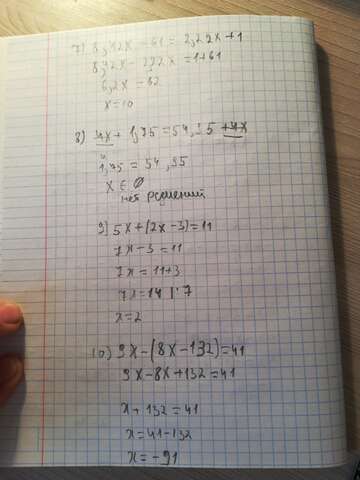 7) 8,42x - 61 = 2,22x + 1
8,42x - 2,22x = 1 + 61
6,2x = 62
x = 10
8) 4x + 1,75 = 54,35 + 4x
1,75 = 54,35
x ∈ ∅
нет решений
9) 5x + (2x - 3) = 11
7x - 3 = 11
7x = 11 + 3
7x = 14 | : 7
x = 2
10) 9x - (8x - 132) = 41
9x - 8x + 132 = 41
x + 132 = 41
x = 41 - 132
x = -91